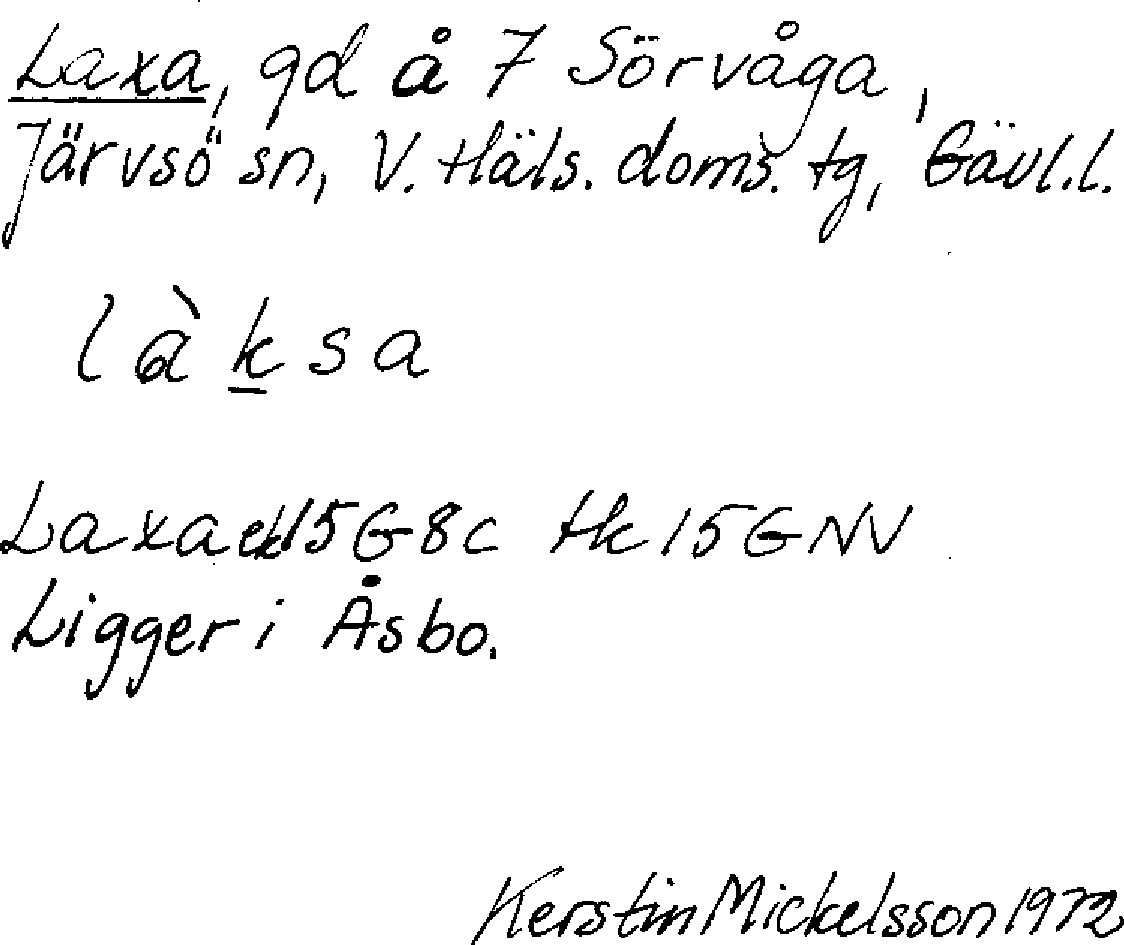 Laxa, gd å 7 Sörvåga,
Järvsö sn, V. Häls. doms. tg, Gävl.l.
l à k s a
Laxa ek15G8c tk15GNV
Ligger i Åsbo.
Kerstin Mickelsson 1972